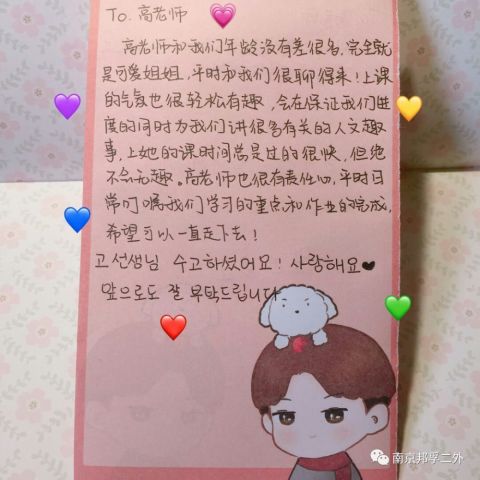 To. 高老师
高老师和我们年龄没有差很多，完全就
是可爱姐姐，平时和我们很聊得来！上课
的气氛也很轻松有趣，会在保证我们进
度的同时为我们讲很多有关的人文趣
事，上她的课时间总是过的很快，但绝
不会无趣。高老师也很有责任心，平时日
常叮嘱我们学习的重点和作业的完成，
希望可以一直走下去！
고선생님 수고하셨어요! 사랑해요♥
앞으로도 잘 부탁드립니다
南京邦孚二外